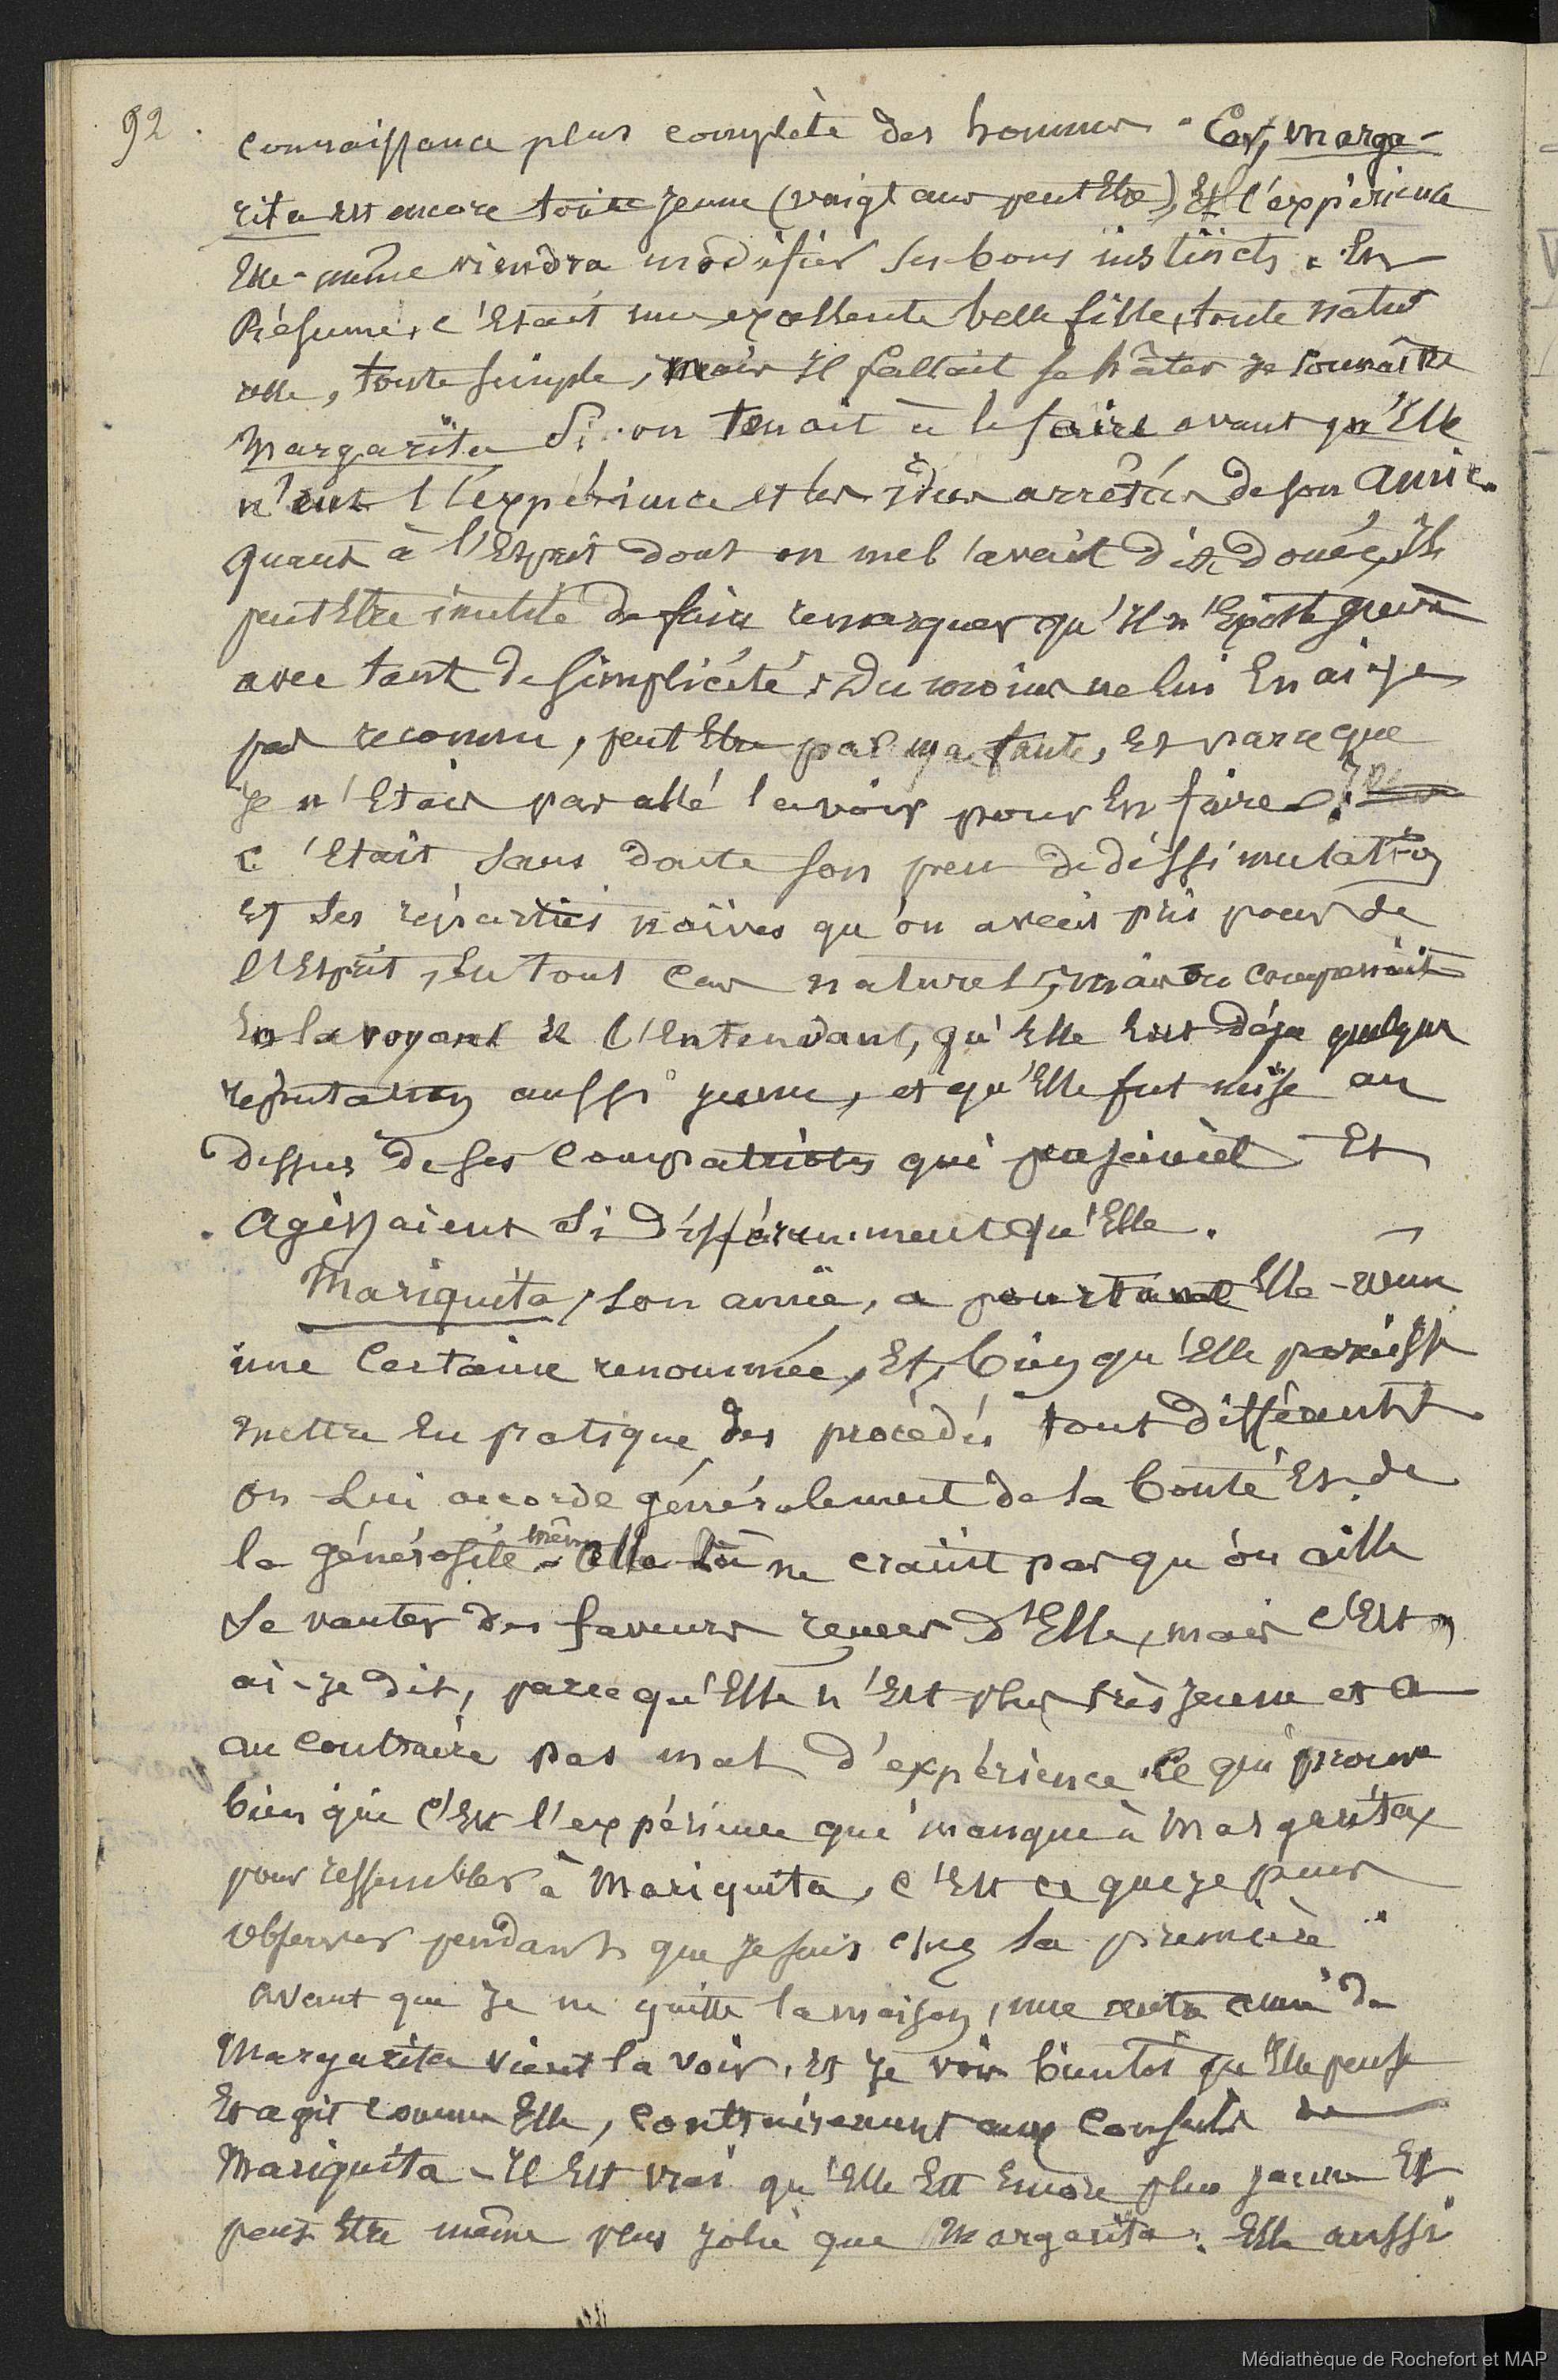 92.
connaissance plus complète des hommes. Car, Marga-
rita est encore toute jeune (vingt ans peut Etre), Et l'expérience
Elle-même viendra modifier ses bons instincts. En
Résumé, c'Etait une excellente belle fille, toute natu
relle, toute simple, mais Il fallait se hâter de connaître
Margarita Si on tenait à le faire avant qu'Elle
n'eut l'expérience et les idées arrêtées de son amie.
quant à l'Esprit dont on me l'avait dit douée, Il
peut Etre inutile de faire remarquer qu'Il n'Existe guère
avec tant de simplicité, Du moins ne lui En ai-je
pas reconnu, peut Etre par ma faute, Et parce que
je n'Etais pas allé la voir pour En faire.
c'Etait sans doute son peu de dissimulation
Et ses réparties naïves qu'on avait pris pour de
l'Esprit, En tout cas naturel, mais on comprenait
En la voyant Et l'Entendant, qu'Elle Eut déjà quelque
réputation aussi jeune, et qu'Elle fut mise au
dessus de ses compatriotes qui pensaient Et
Agissaient si différemment qu'Elle.
Mariquita, son amie, a pourtant Elle-même
une certaine renommée, Et, bien qu'Elle paraisse
mettre En pratique des procédés tout différents
on lui accorde générralement de la bonté Et de
la générosité même. Elle là ne craint pas qu'on aille
se vanter des faveurs reçues d'Elle, mais c'Est,
ai-je dit, parce qu'Elle n'Est plus très jeune et a
au contraire pas mal d'expérience. Ce qui prouve
bien que c'Est l'expérience qui manque à Margarita
pour ressembler à Mariquita, c'Est ce que je peux
observer pendant que je suis chez la première.
Avant que je ne quitte la maison, une autre amie de
Margarita vient la voir, Et je vois bientôt qu'Elle pense
Et agit comme Elle, contrairement aux conseils de
Mariquita - Il Est vrai qu'Elle Est Encore plus jeune Et
peut Etre même plus jolie que Margarita. Elle aussi
Médiathèque de Rochefort et MAP